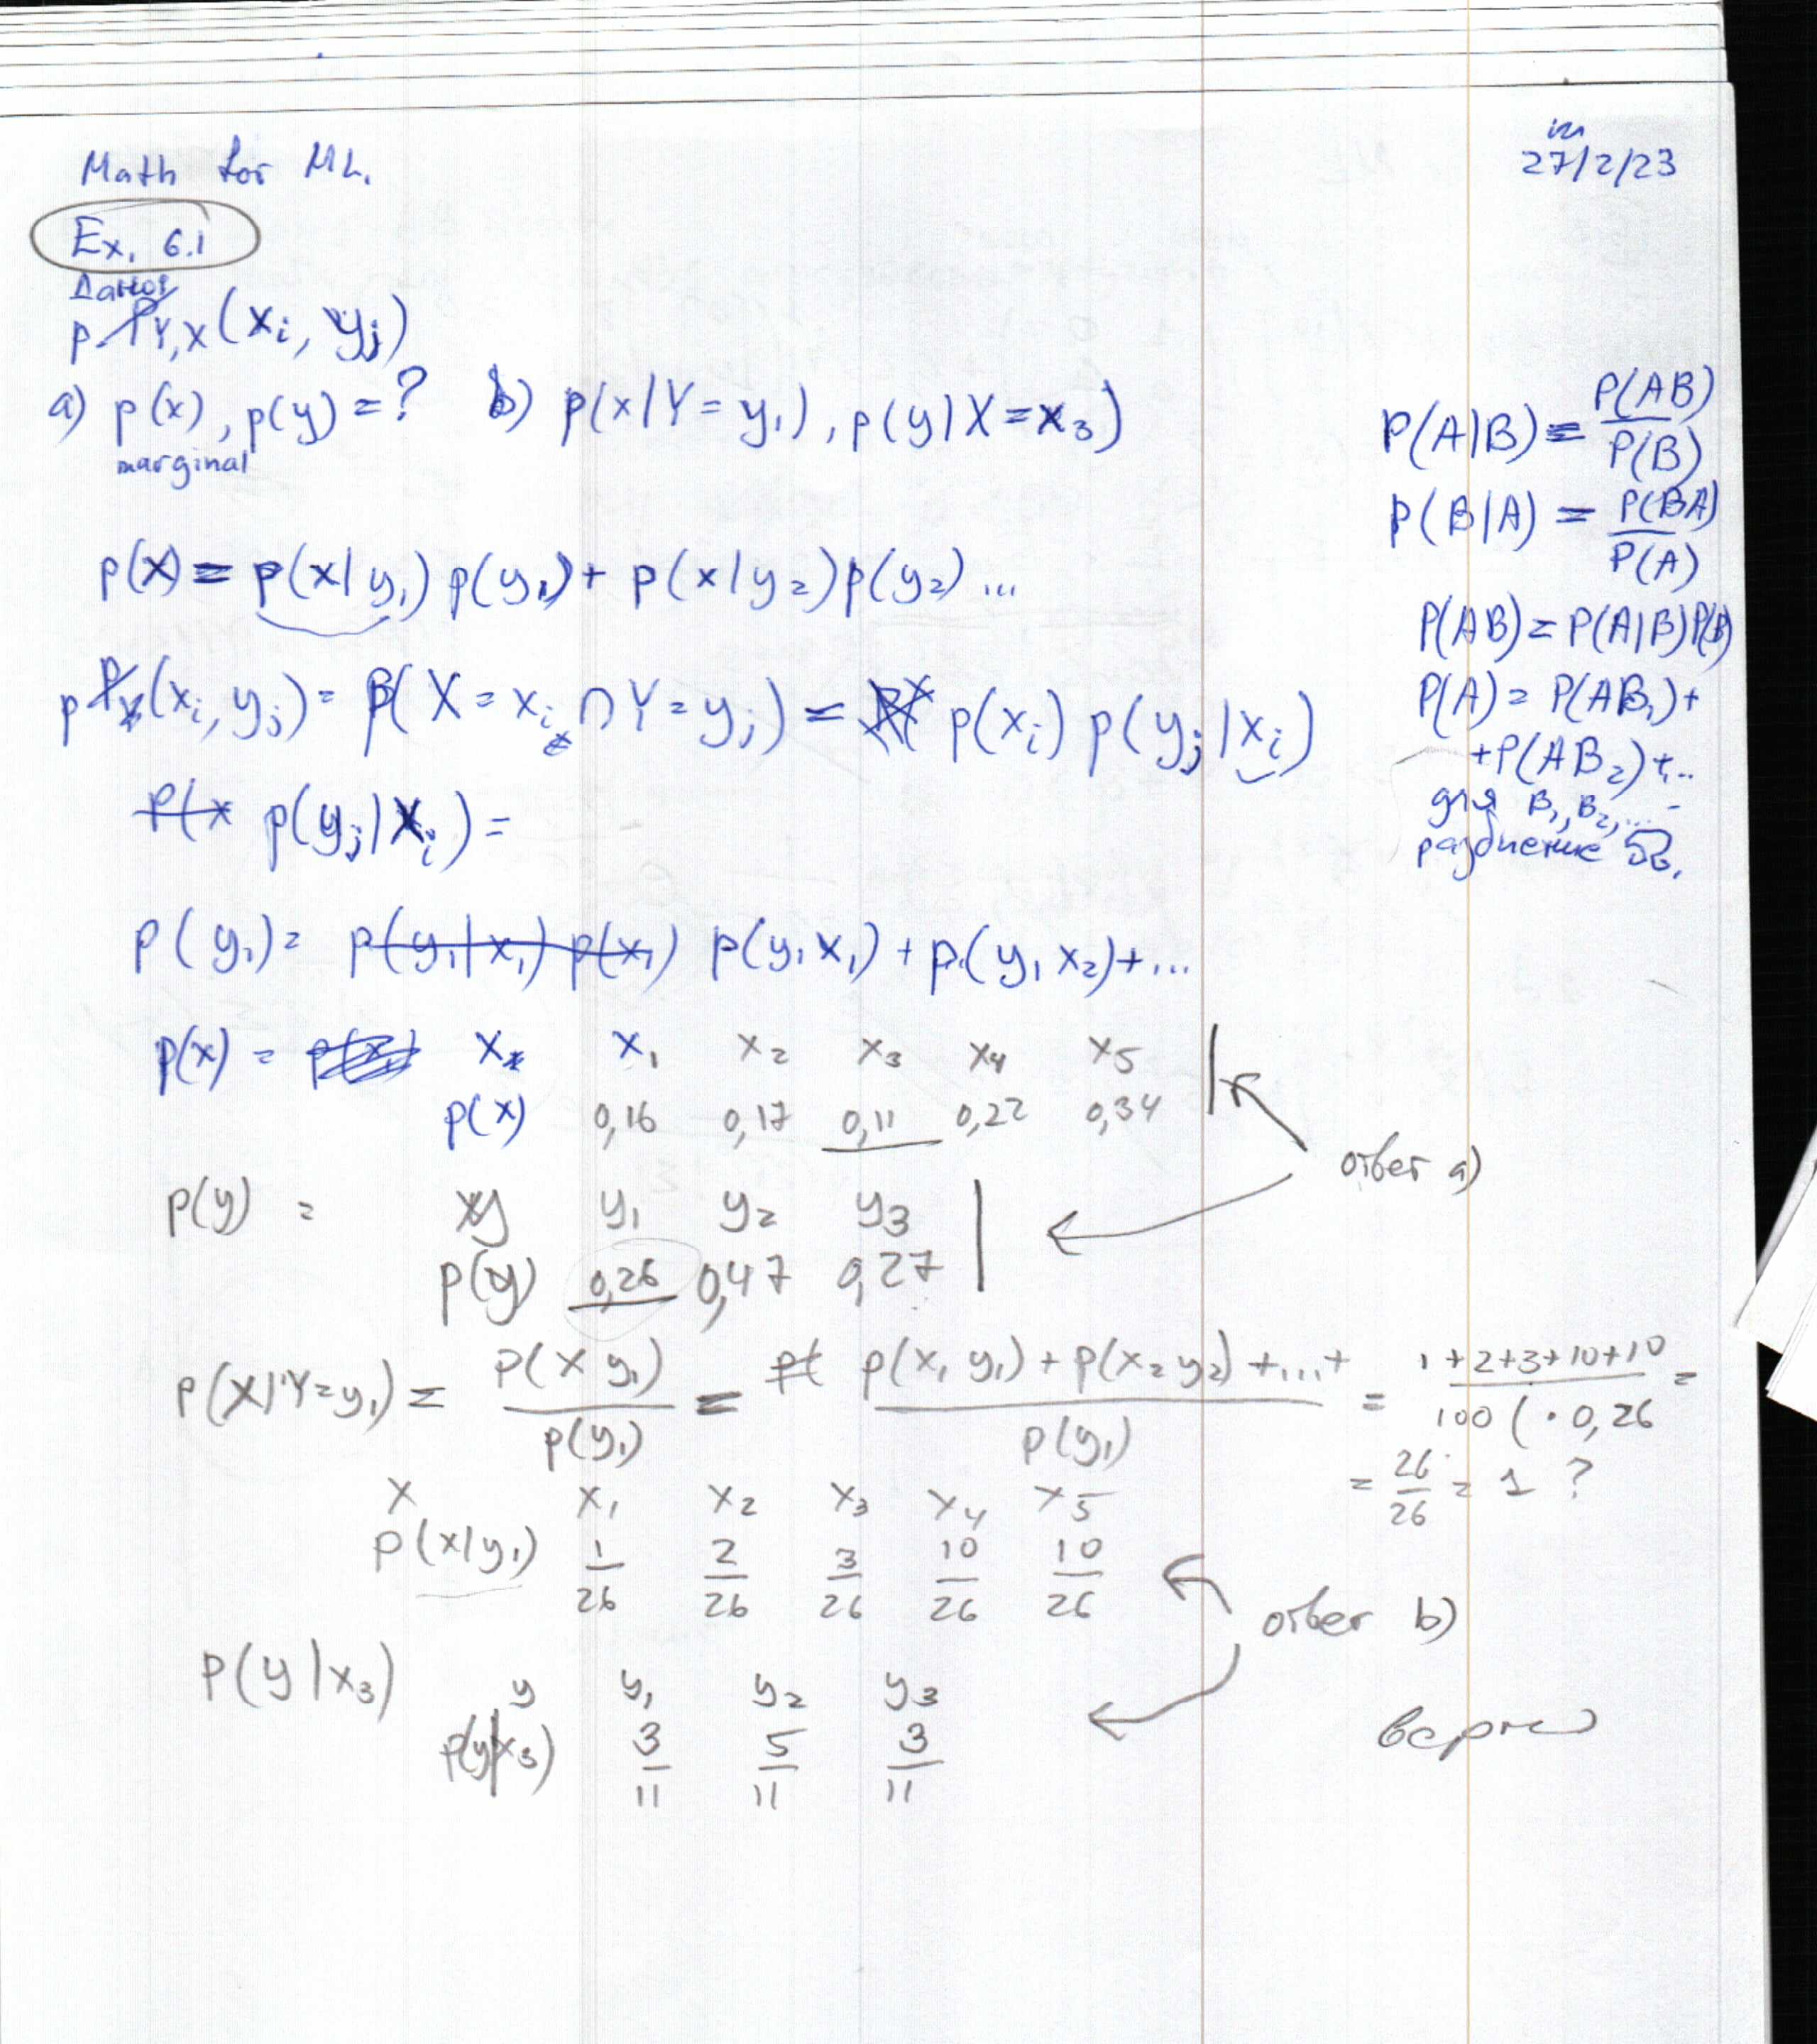 Math for ML.
in
27/2/23
Ex. 6.1
Дано:
p Y,X (xi, yj)
a) p(x), p(y) = ? b) p(x|Y=y1), p(y|X=x3)
marginal
P(A|B) = P(AB) / P(B)
P(B|A) = P(BA) / P(A)
P(AB) = P(A|B)P(B)
P(A) = P(AB1) +
+ P(AB2) + ..
для B1, B2, ... -
разбиение Ω.
p(x) = p(x|y1) p(y1) + p(x|y2) p(y2) ...
p (xi, yj) = P(X = xi ∩ Y = yj) = p(xi) p(yj|xi)
p(x p(yj|xi) =
p(y1) = p(y1|x1) p(x1) p(y1 x1) + p(y1 x2) + ...
p(x) = x x1 x2 x3 x4 x5
p(x) 0,16 0,17 0,11 0,22 0,34
ответ a)
p(y) = y y1 y2 y3
p(y) 0,26 0,47 0,27
p(X|Y=y1) = p(x y1) / p(y1) = p( p(x1 y1) + p(x2 y2) + ... + / p(y1) = 1+2+3+10+10 / 100 ( · 0,26 =
= 26/26 = 1 ?
x x1 x2 x3 x4 x5
p(x|y1) 1/26 2/26 3/26 10/26 10/26
ответ b)
p(y|x3) y y1 y2 y3
p(y|x3) 3/11 5/11 3/11
верно